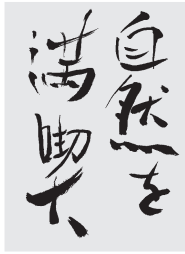 自然を
満喫